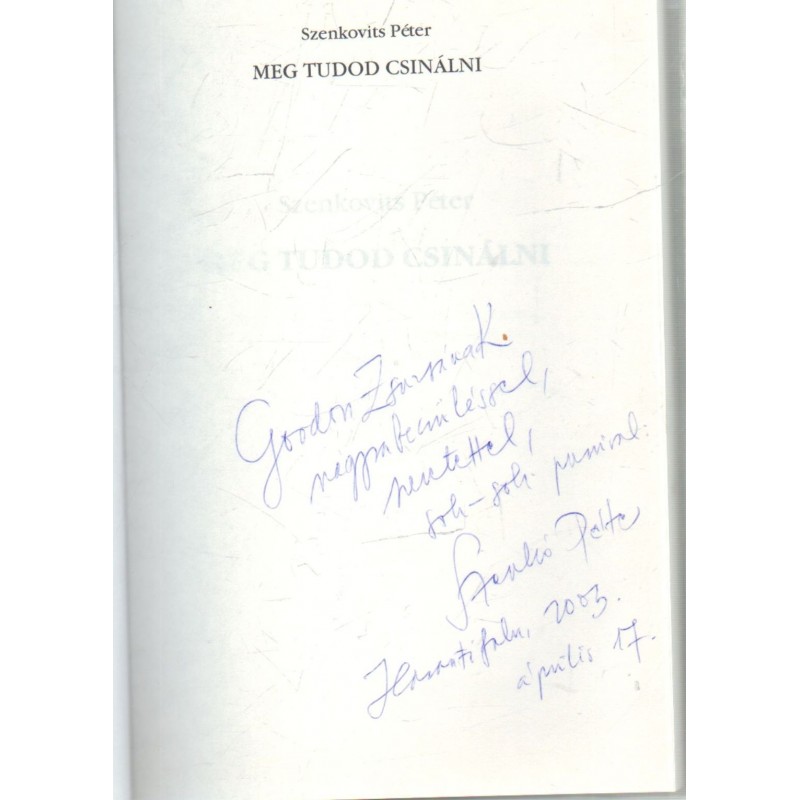 Szenkovits Péter
MEG TUDOD CSINÁLNI
Szenkovits Péter
MEG TUDOD CSINÁLNI
Gordon Zsuzsának
nagyrabecsüléssel,
szeretettel,
sok-sok puszival:
Szenkó Péter
2003.
április 17.